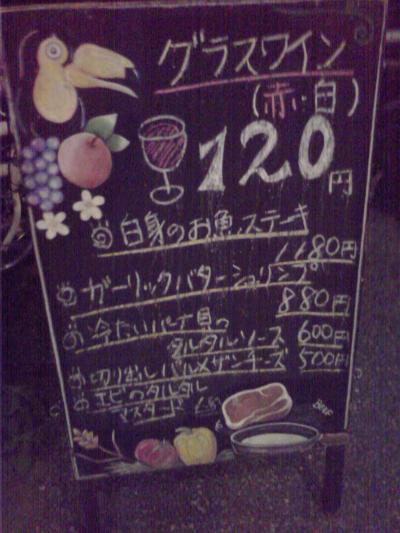 グラスワイン
(赤・白)
120円
白身のお魚ステーキ
1180円
ガーリックバターシュリンプ
880円
冷たいパイ貝の
タルタルソース 600円
切り出しパルメザンチーズ 500円
エビのタルタル
マスタード
BEEF